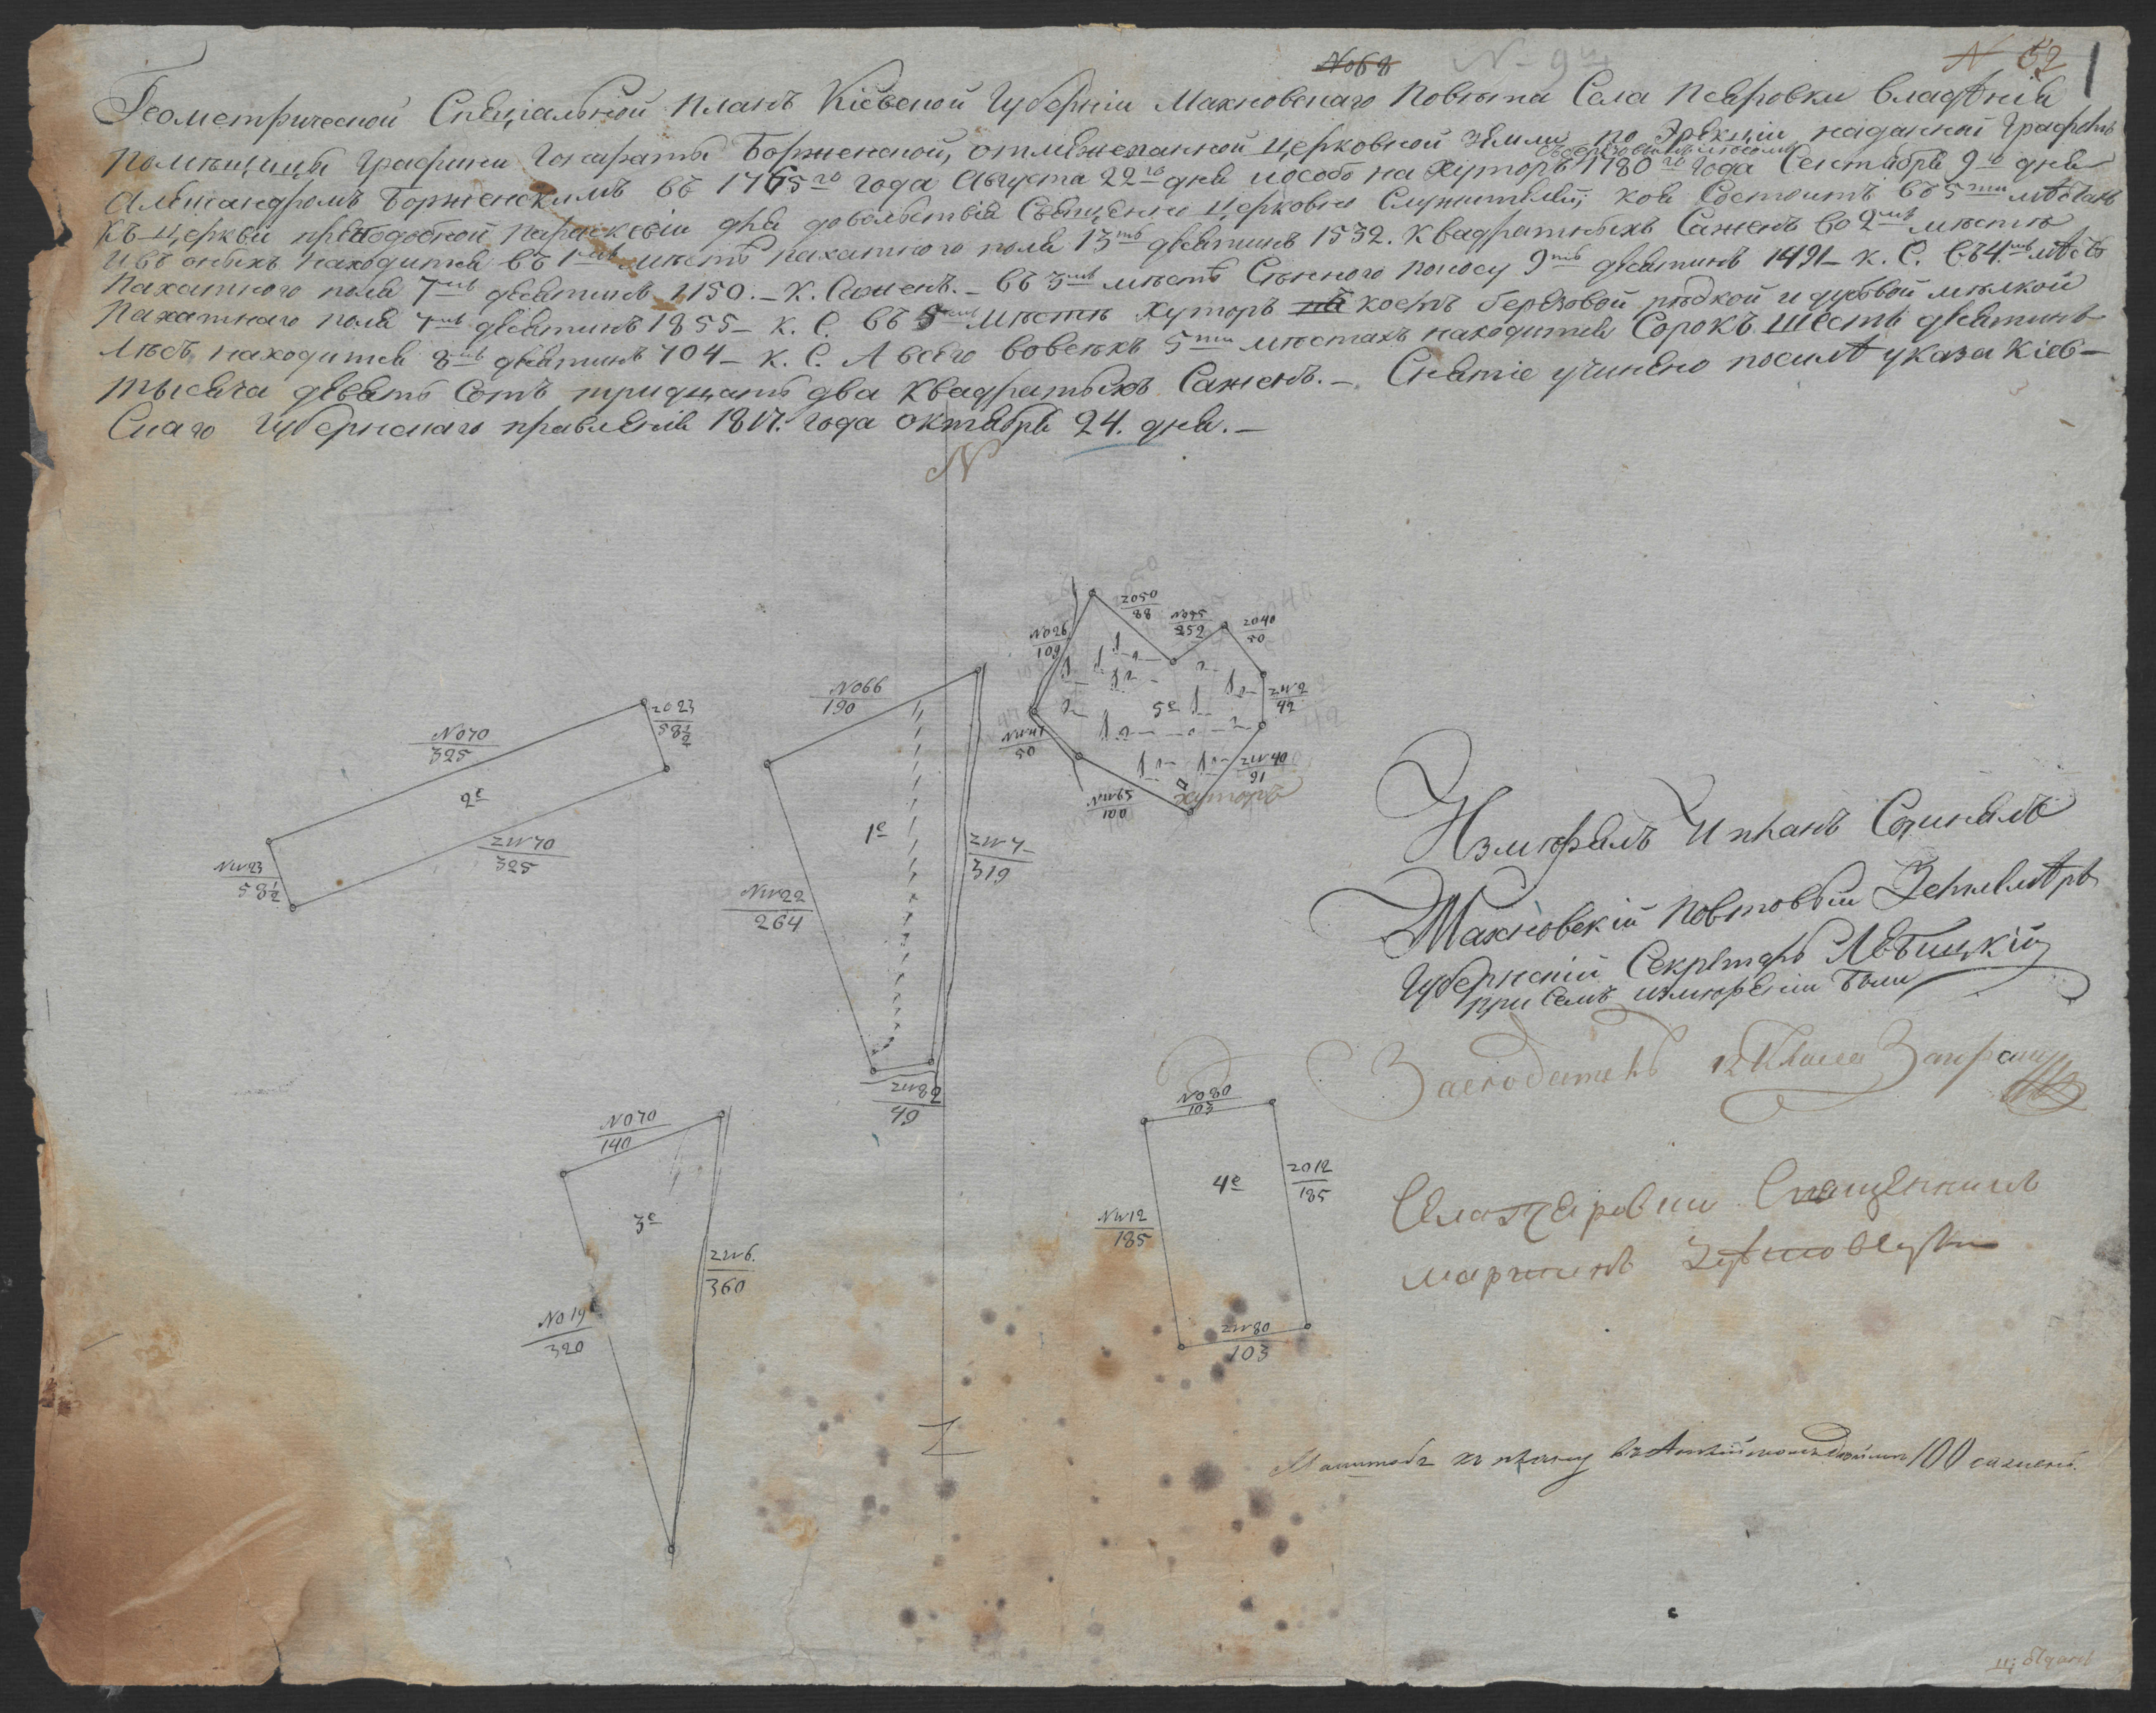 № 68
N - 94
N 52
Геометрической Специальной планъ Кіевской Губерніи Махновскаго Повѣта Села Псяровки владѣнія
помѣщицы Графини Гонораты Борженской, отмежеванной церковной земли по Эрекціи наданной Графомъ
Александромъ Борженскимъ въ 1765го года Августа 22го дня и особо на хуторъ 1780го года Сентября 9го дня
къ церкви преподобной Параскевіи для довольствія Священно церковно Служителей, кои Состоитъ въ 5ти мѣстахъ
и въ оныхъ находится въ 1мъ мѣстѣ пахатного поля 13ть десятинъ 1532. Квадратныхъ Сажень во 2мъ мѣстѣ
Пахатного поля 7мь десятинъ 1150. - К. Сажень. - въ 3мъ мѣстѣ Сѣнного покосу 9ть десятинъ 1491 - К. С. въ 4мъ мѣстѣ
Пахатнаго поля 7мь десятинъ 1855 - К. С. въ 5мъ мѣстѣ Хуторъ березовой рѣдкой и дубовой мѣлкой
лѣсъ находится 8мь десятинъ 704 - К. С. А всего вовсѣхъ 5ти мѣстахъ находится Сорокъ шесть десятинъ
тысяча девять Сотъ тридцать два Квадратныхъ Сажень. - Снятіе учинено посилѣ указа Кіев-
Скаго Губернскаго правленія 1817. года октября 24. дня. -
N
NO 26
109
2050
88
NO 45
52
2040
50
2W 2
42
5е
NW 41
50
NW 65
100
2W 40
91
хуторъ
NO 70
325
2023
58½
2е
NW 23
58½
2W 70
325
NO 66
190
1е
NW 22
264
2W 7
319
2W 82
49
Измѣрялъ И планъ Сочинялъ
Махновскій повѣтовый Землемѣръ
Губернскій Секретарь Лѣвицкій
при Семъ измѣреніи были
Засѣдатель 12 Класса
NO 70
140
3е
2W 6.
360
NO 19
320
NO 80
103
4е
2012
185
NW 12
185
2W 80
103
Села Псяровки Священникъ
Мартинъ
Масштабъ къ плану въ Англійскомъ дюймѣ 100 сажень.